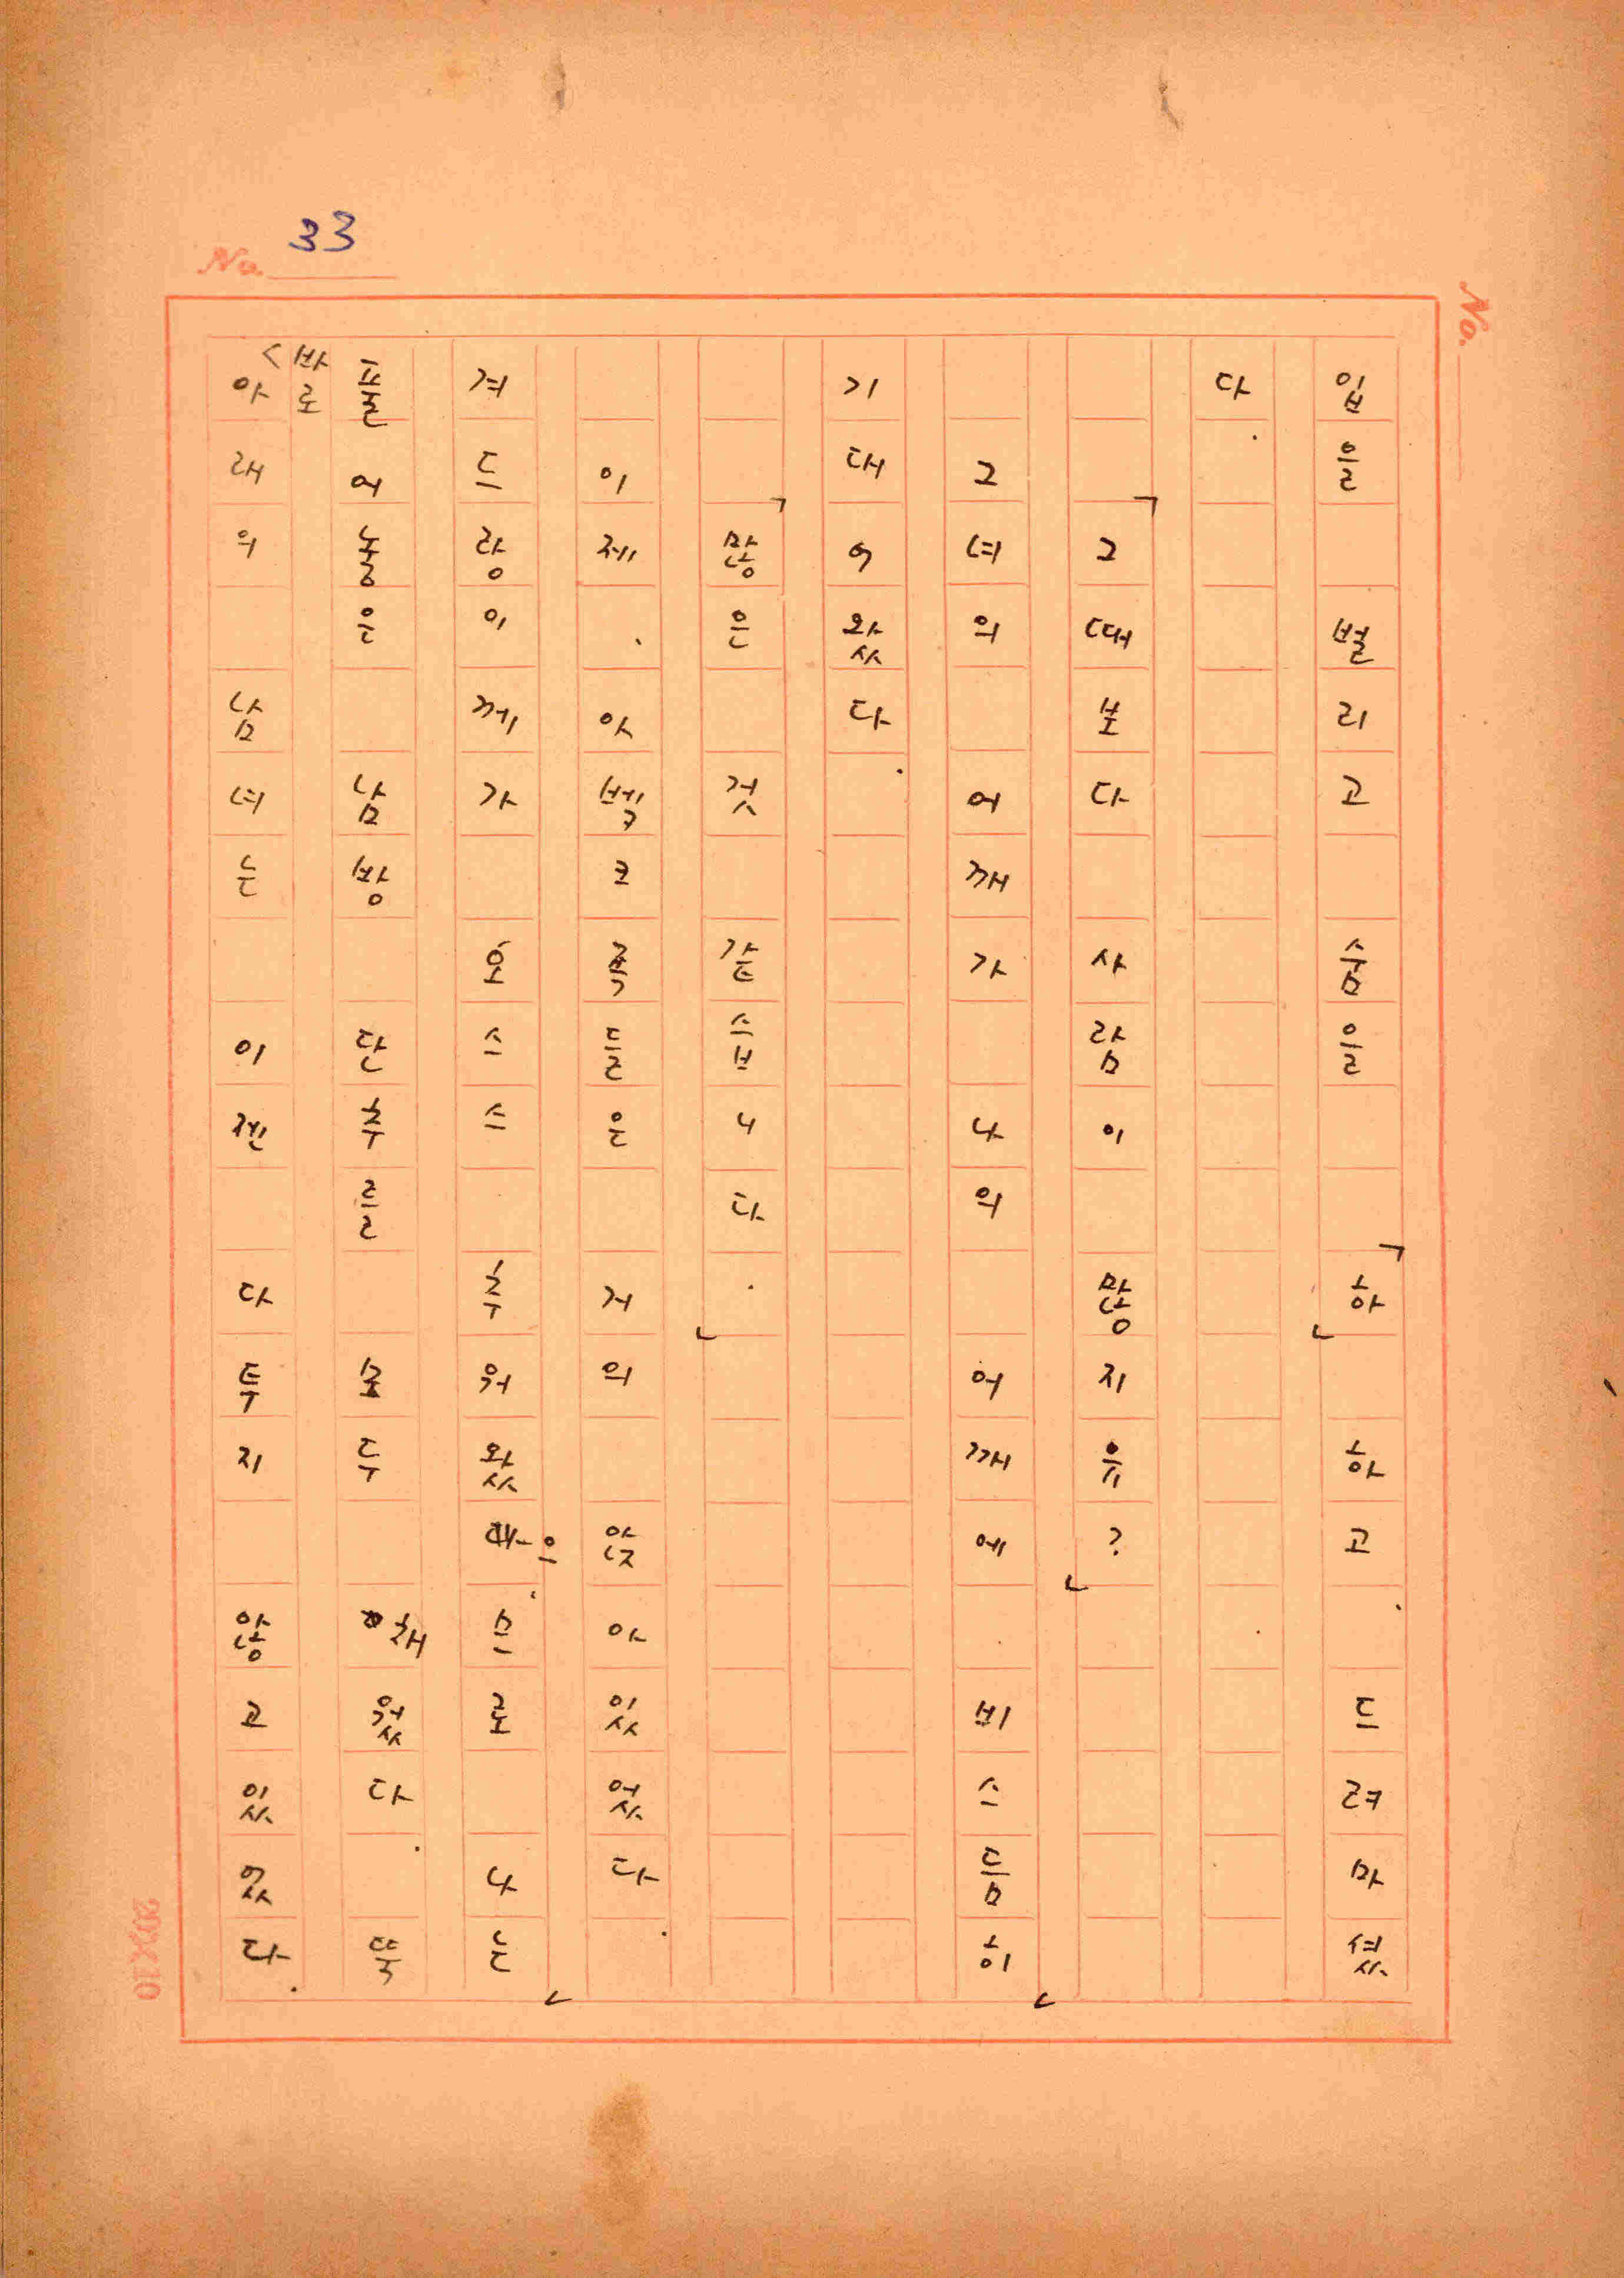 No. 33
No.
입을 벌리고 숨을 「하」하고. 드려마셨
다.
「그때보다 사람이 많지유?」
그녀의 어깨가 나의 어깨에 비스듬히
기대어왔다.
「많은 것 같습니다.」
이제、 아벡크족들은 거의 앉아있었다.
겨드랑이께가 오스스 추워왔으므로 나는
풀어놓은 남방 단추를 모두 채웠다. 뚝
바로
아래의 남녀는 이젠 다투지 않고있었다.
20×10